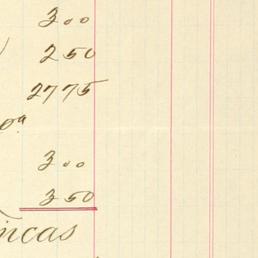 300
250
2775
oa
300
350
incas